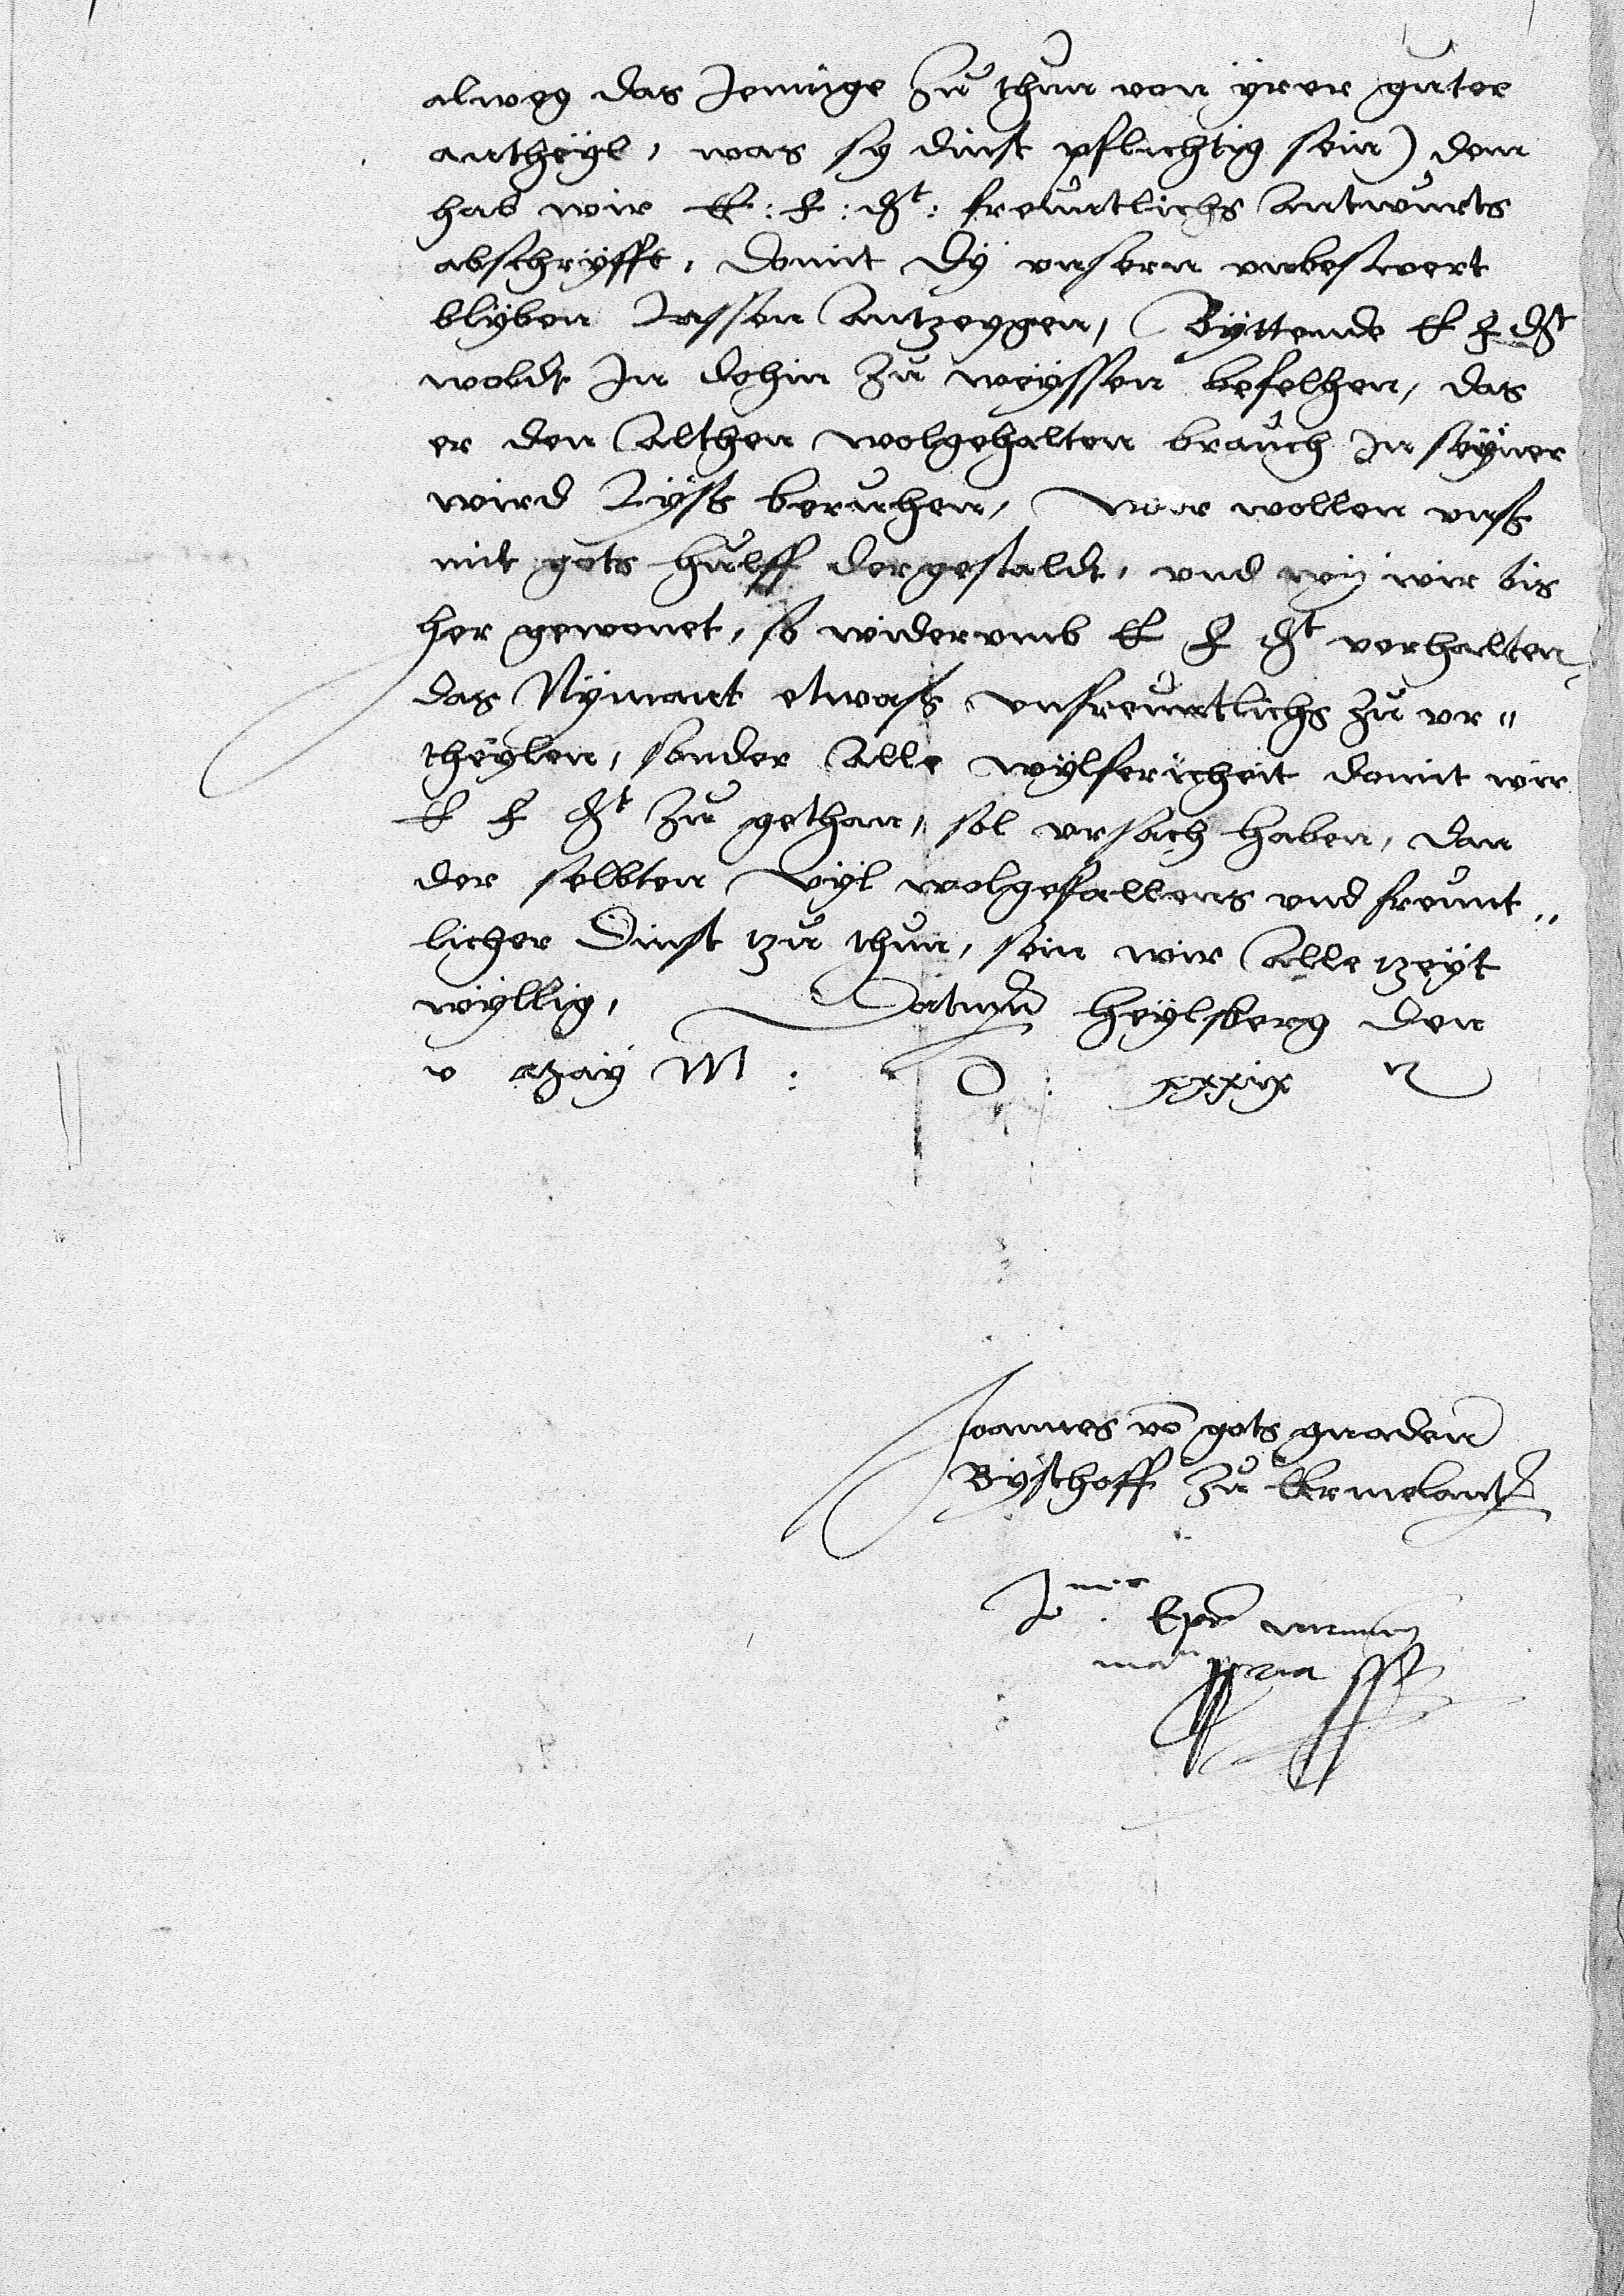 alweg das Jennige zu thun von yrer guter
antheyl, was sy dinst pflichtig sein) dem
hab wir E: F: Dt: freuntlichs Antwurts
abschryfft, domit dy unsern unbeswert
blyben lassen Antzeygen, Byttende E F Dt
woldt In dohin zu weyssen befelhen, das
er den Althen wolgehalten brauch In seyner
wird lyss beruhen, Wir wollen unss
mit gots hulff dergestaldt, und wy wir bis
her gewonet, so widerumb E F Dt verhalten
das Nymant etwass unfreuntlichs zu ur=
theylen, sonder Alle wylfericheit domit wir
E F Dt zu gethan, sol ursach haben, dan
der selbten vyl wolgefallens und freunt=
licher Dinst tzu thun, sein wir Alle tzeyt
wyllig, Datum Heylsberg den
v May M: D: xxxix
Joannes vo gots gnaden
Byschoff zu Ermelantt
Epus
man ppria sst